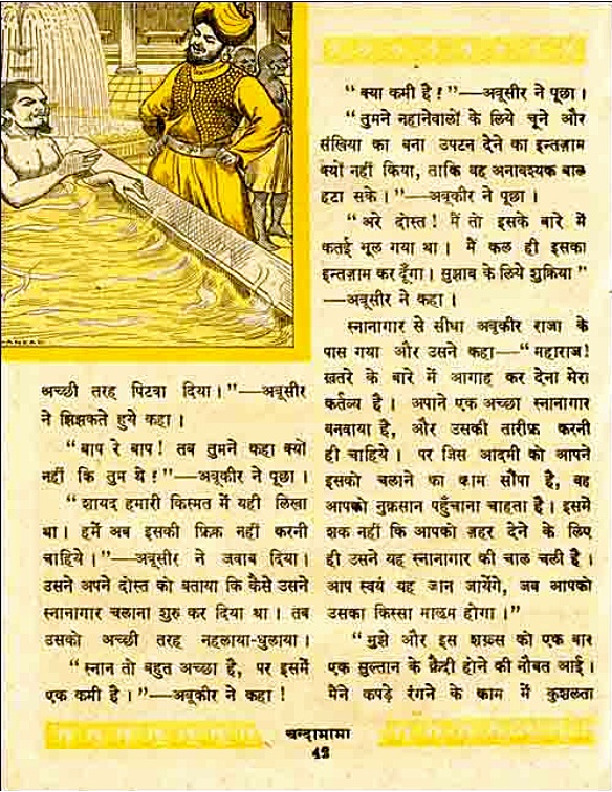 अच्छी तरह पिटवा दिया।"—अबूसीर
ने झिझकते हुये कहा।
"बाप रे बाप! तब तुमने कहा क्यों
नहीं कि तुम थे!"—अबूकीर ने पूछा।
"शायद हमारी किस्मत में यही लिखा
था। हमें अब इसकी फ़िक्र नहीं करनी
चाहिये।"—अबूसीर ने जवाब दिया।
उसने अपने दोस्त को बताया कि कैसे उसने
स्नानागार चलाना शुरु कर दिया था। तब
उसको अच्छी तरह नहलाया-धुलाया।
"स्नान तो बहुत अच्छा है, पर इसमें
एक कमी है।"—अबूकीर ने कहा!
"क्या कमी है!"—अबूसीर ने पूछा।
"तुमने नहानेवालों के लिये चूने और
संखिया का बना उपटन देने का इन्तज़ाम
क्यों नहीं किया, ताकि वह अनावश्यक बाल
हटा सके।"—अबूकीर ने पूछा।
"अरे दोस्त! मैं तो इसके बारे में
कतई भूल गया था। मैं कल ही इसका
इन्तज़ाम कर दूँगा। सुझाव के लिये शुक्रिया"
—अबूसीर ने कहा।
स्नानागार से सीधा अबूकीर राजा के
पास गया और उसने कहा—"महाराज!
ख़तरे के बारे में आगाह कर देना मेरा
कर्तव्य है। अपाने एक अच्छा स्नानागार
बनवाया है, और उसकी तारीफ़ करनी
ही चाहिये। पर जिस आदमी को आपने
इसको चलाने का काम सौंपा है, वह
आपको नुक़सान पहुँचाना चाहता है। इसमें
शक नहीं कि आपको ज़हर देने के लिए
ही उसने यह स्नानागार की चाल चली है।
आप स्वयं यह जान जायेंगे, जब आपको
उसका किस्सा मालम होगा।"
"मुझे और इस शख़्स को एक बार
एक सुल्तान के क़ैदी होने की नौबत आई।
मैंने कपड़े रंगने के काम में कुशलता
चन्दामामा
४२